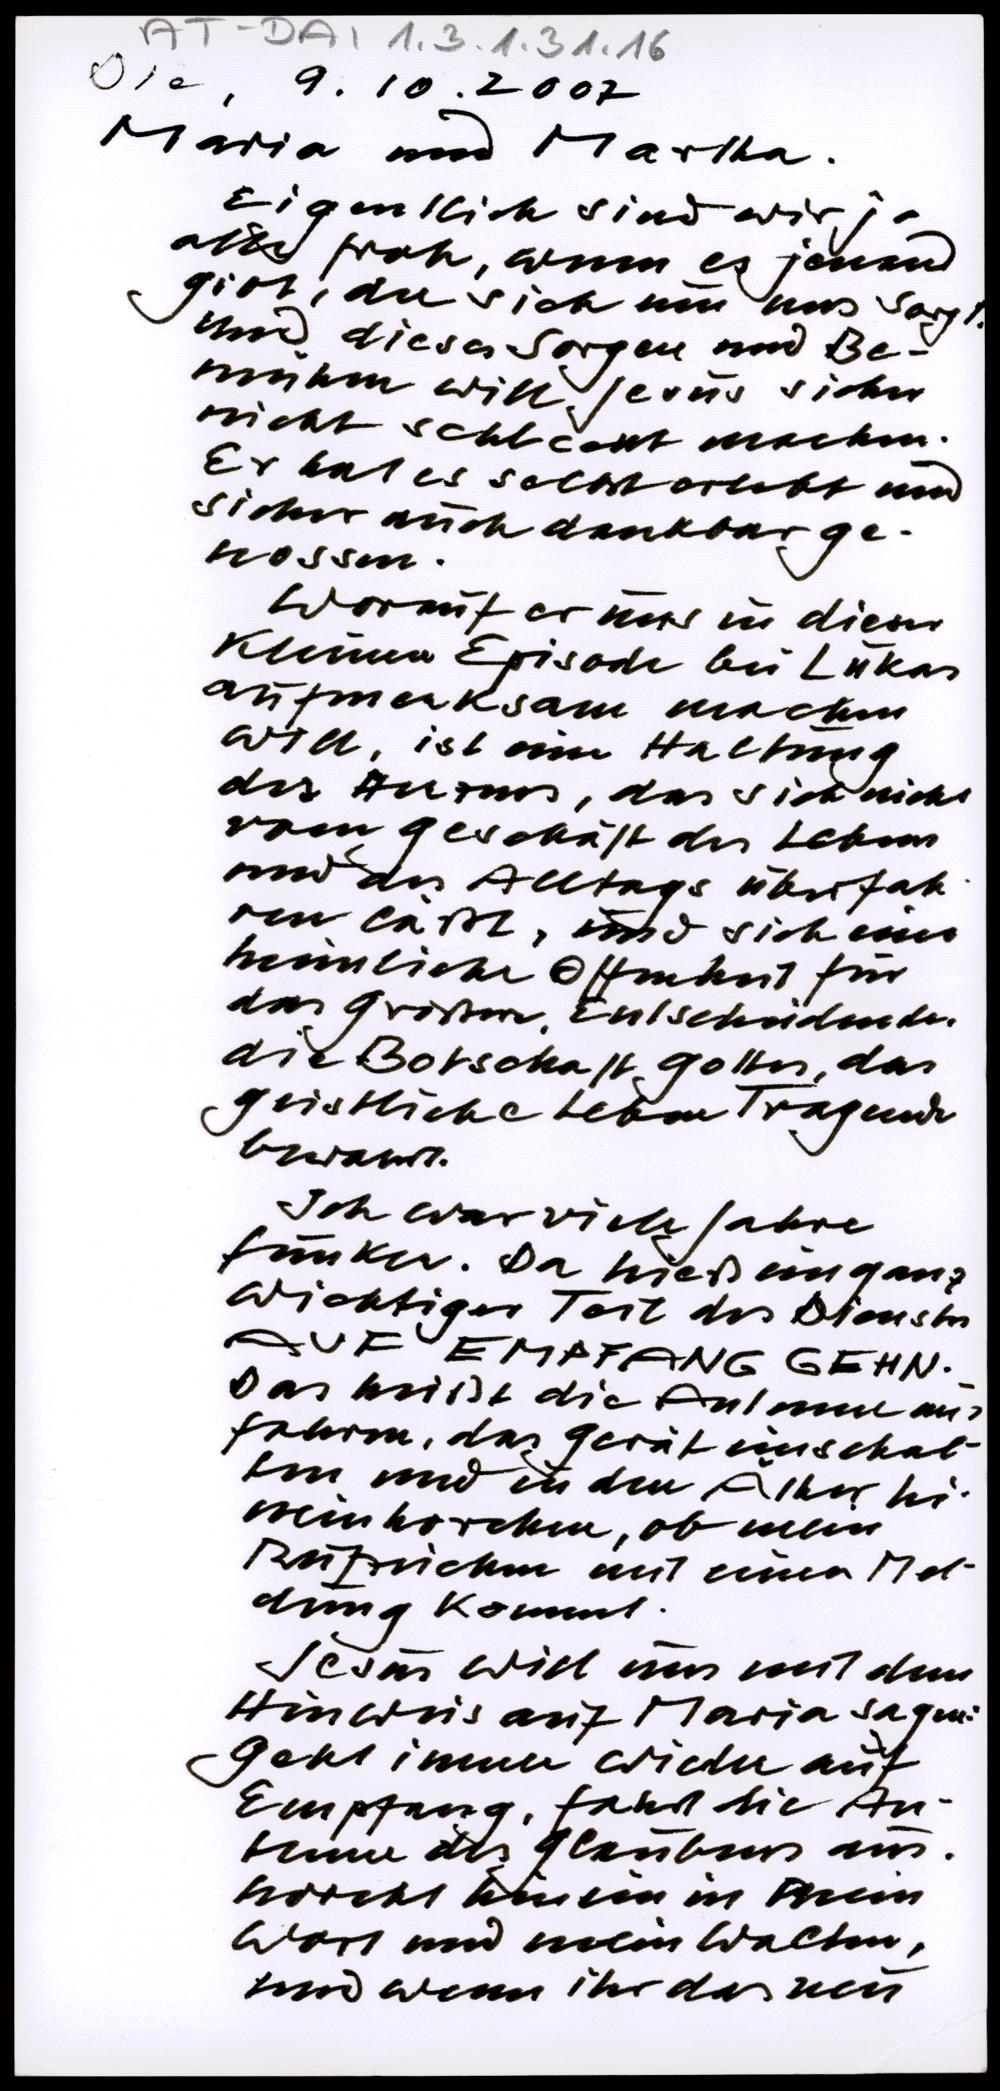 AT-DAI 1.3.1.31.16
Die, 9.10.2007
Maria und Martha.
Eigentlich sind wir ja
alle froh, wenn es jemand
gibt, der sich um uns sorgt.
Und dieses Sorgen und Be-
mühen will Jesus sicher
nicht schlecht machen.
Er hat es selbst erlebt und
sicher auch dankbar ge-
nossen.
Worauf er uns in dieser
kleinen Episode bei Lukas
aufmerksam machen
will, ist eine Haltung
des Herzens, das sich nicht
vom Geschäft des Lebens
und des Alltags überfah-
ren läßt, und sich eine
heimliche Offenheit für
das Größere, Entscheidende,
die Botschaft Gottes, das
geistliche Leben Tragende
bewahrt.
Ich war viele Jahre
Funker. Da hieß ein ganz
wichtiger Teil des Dienstes
AUF EMPFANG GEHN.
Das heißt die Antenne aus-
fahren, das Gerät einschal-
ten und in den Äther hi-
neinhorchen, ob mein
Rufzeichen mit einer Mel-
dung kommt.
Jesus will uns mit dem
Hinweis auf Maria sagen:
Geht immer wieder auf
Empfang, fahrt die An-
tenne des Glaubens aus.
horcht hinein in mein
Wort und mein Walten,
und wenn ihr das neu